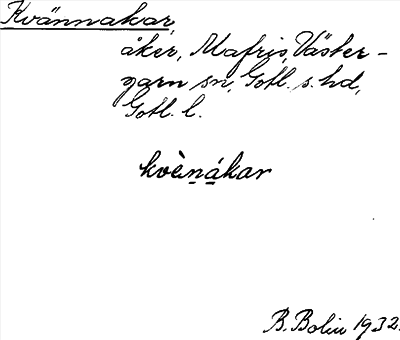 Kvännakar,
åker, Mafris, Väster-
garn sn, Gotl. s. hd,
Gotl. l.
kvènákar
B. Bolin 1932.